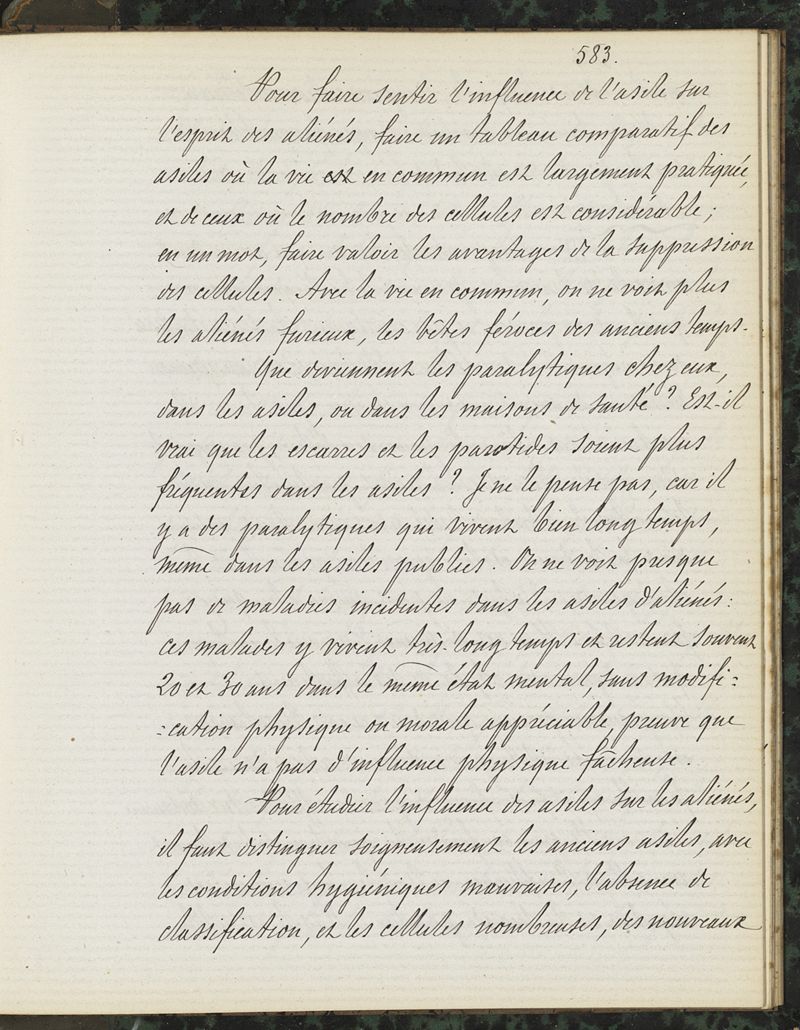 583.
Pour faire sentir l'influence de l'asile sur
l'esprit des aliénés, faire un tableau comparatif des
asiles où la vie est en commun est largement pratiquée,
et de ceux où le nombre des cellules est considérable ;
en un mot, faire valoir les avantages de la suppression
des cellules. Avec la vie en commun, on ne voit plus
les aliénés furieux, les bêtes féroces des anciens temps.
Que deviennent les paralytiques chez eux,
dans les asiles, ou dans les maisons de santé ? Est-il
vrai que les escarres et les parotides soient plus
fréquentes dans les asiles ? Je ne le pense pas, car il
y a des paralytiques qui vivent bien longtemps,
même dans les asiles publics. On ne voit presque
pas de maladies incidentes dans les asiles d'aliénés :
ces malades y vivent très-longtemps et restent souvent
20 et 30 ans dans le même état mental, sans modifi=
=cation physique ou morale appréciable, preuve que
l'asile n'a pas d'influence physique fâcheuse.
Pour étudier l'influence des asiles sur les aliénés,
il faut distinguer soigneusement les anciens asiles, avec
les conditions hygiéniques mauvaises, l'absence de
classification, et les cellules nombreuses, des nouveaux